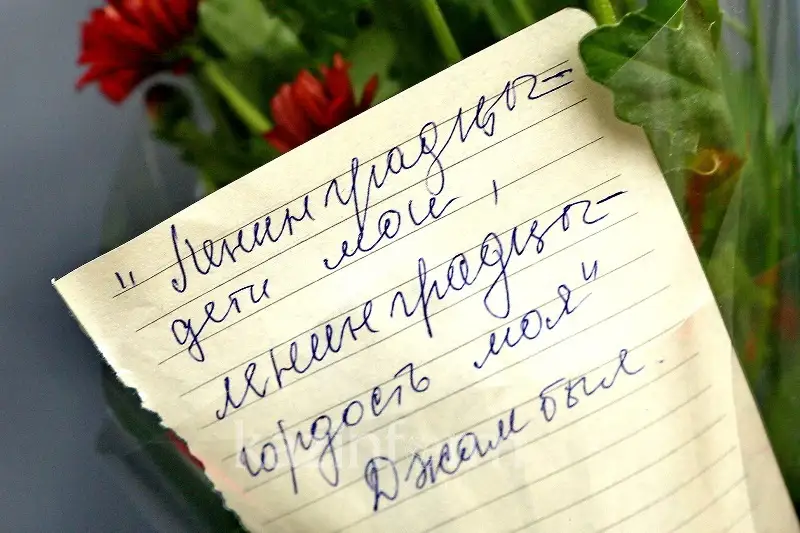 "Ленинградцы-
дети мои,
ленинградцы-
гордость моя"
Джамбыл.